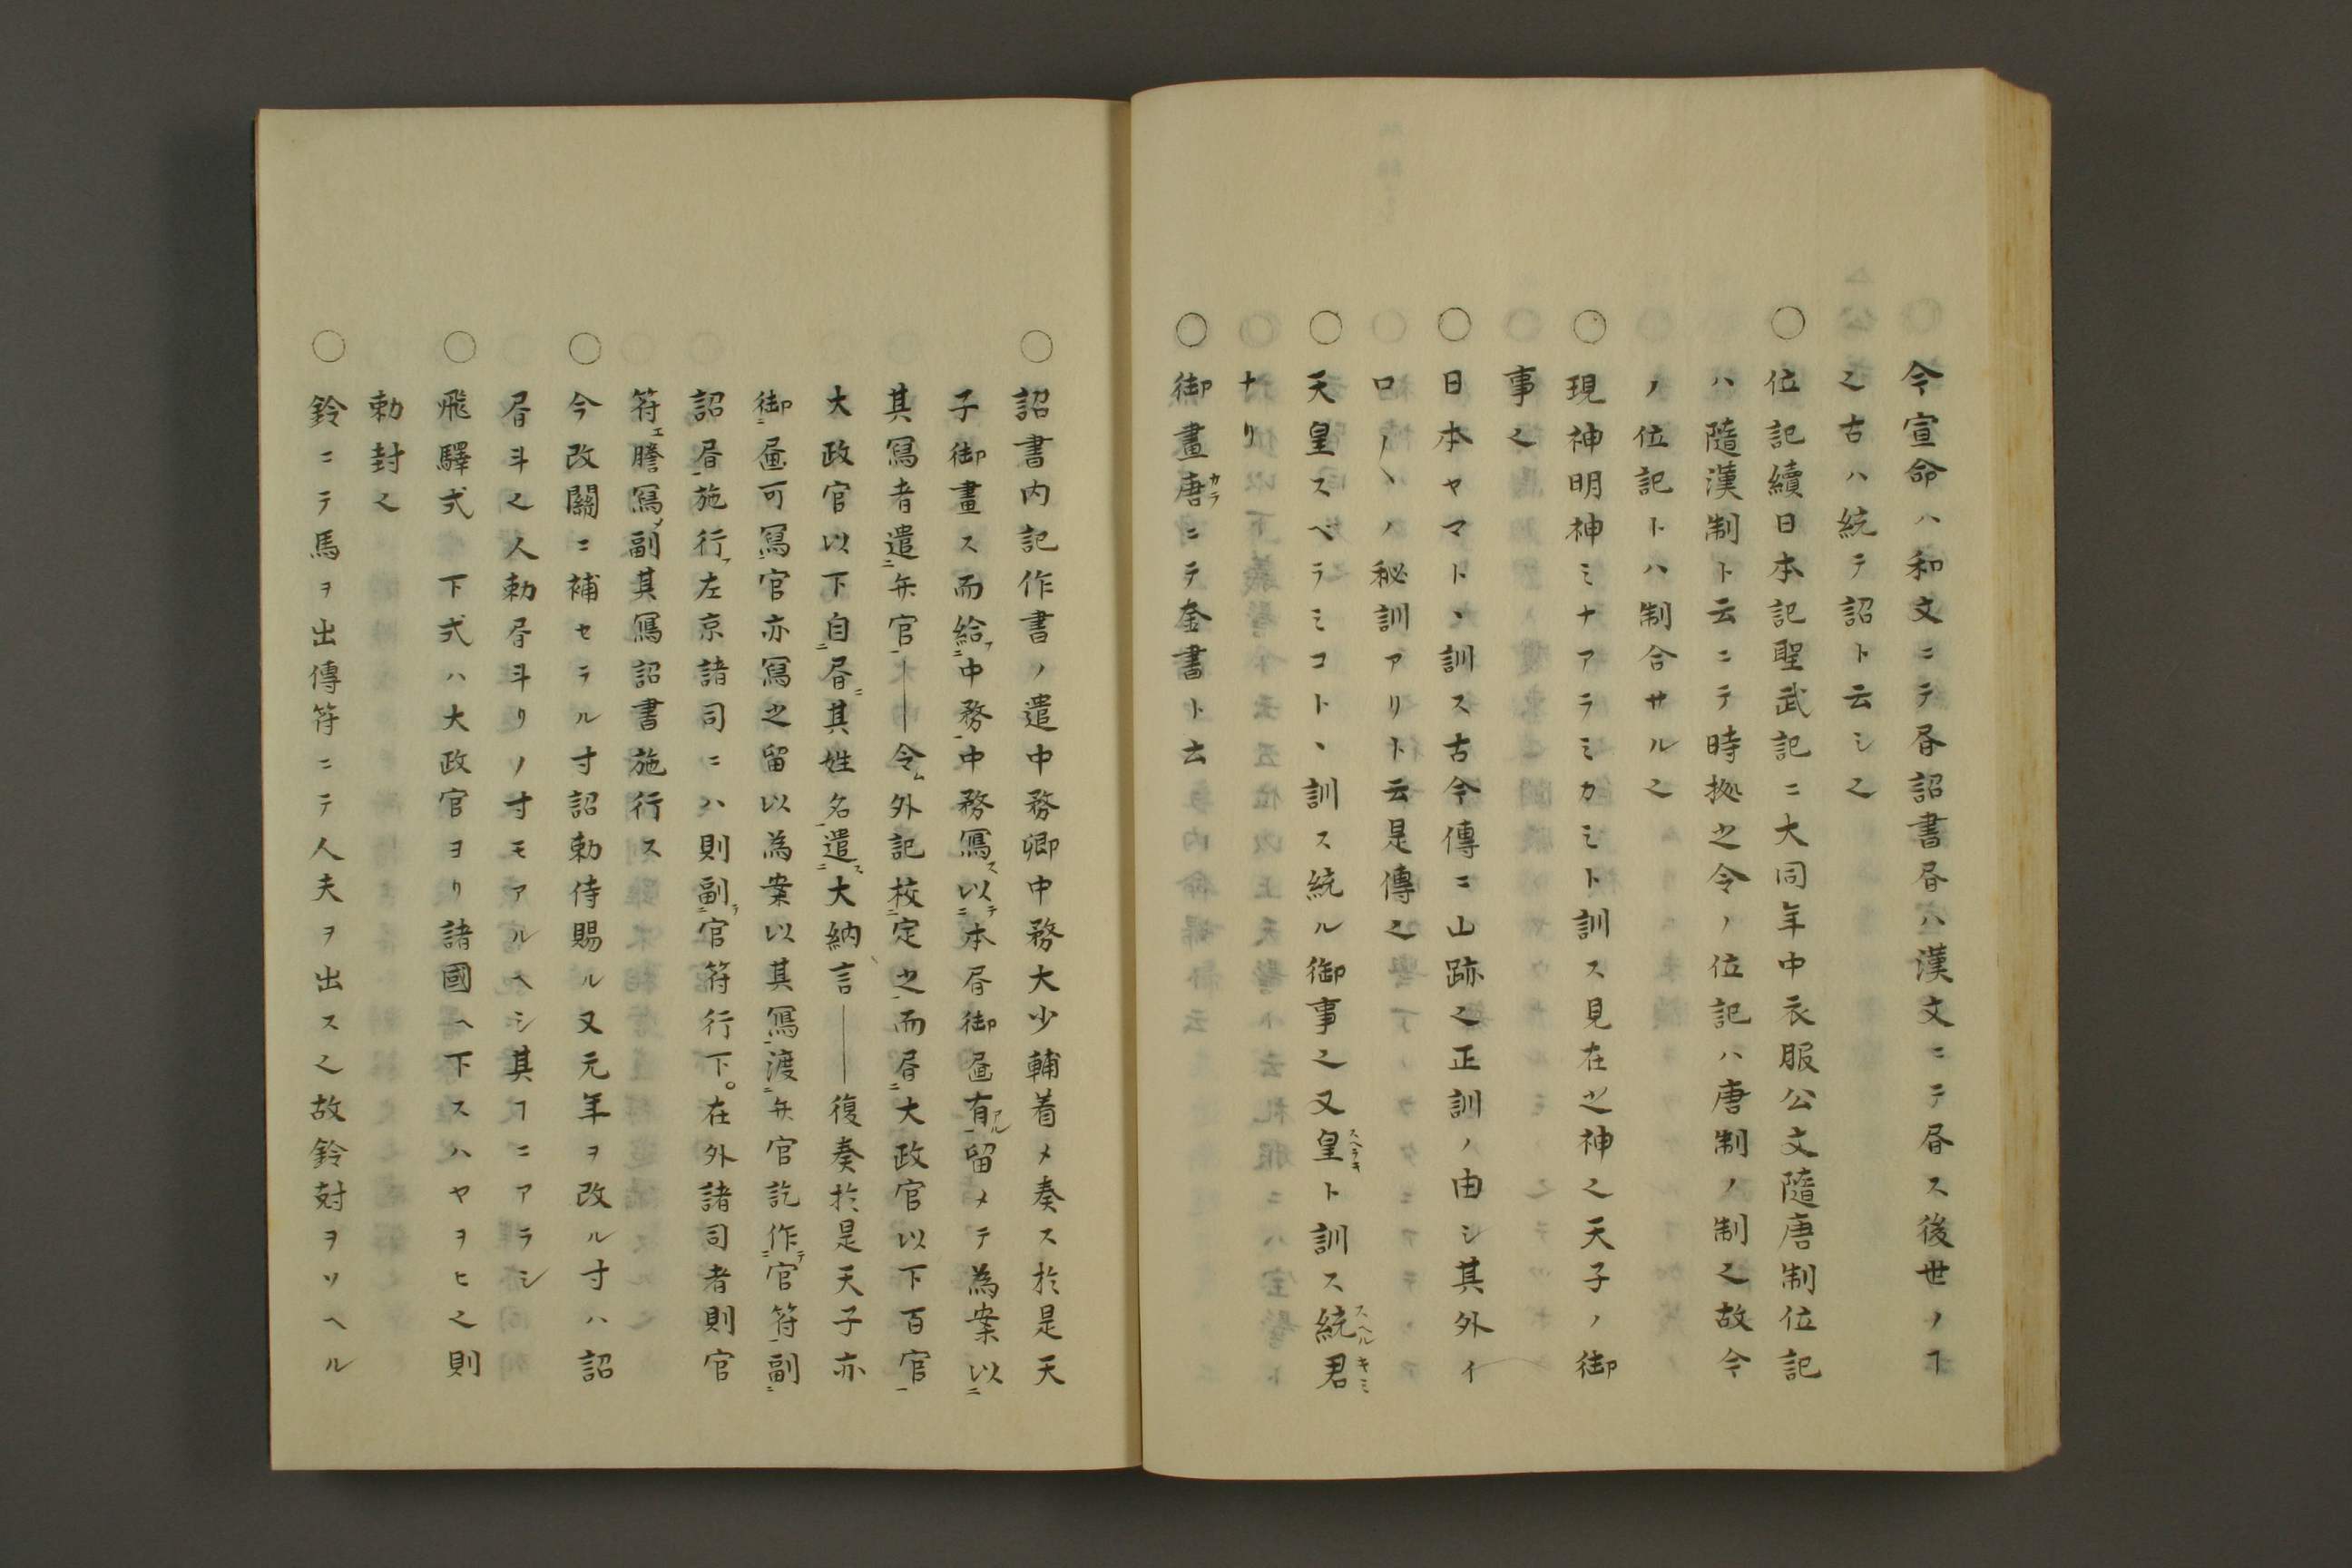 今宣命ハ和文ニテ㫪詔書㫪ハ漢文ニテ㫪ス後世ノヿ
之古ハ統テ詔ト云シ之
○位記續日本記聖武記ニ大同年中衣服公文隨唐制位記
ハ隨漢制ト云ニテ時拠之令ノ位記ハ唐制ノ制之故今
ノ位記トハ制合サル之
○現神明神ミナアラミカミト訓ス見在之神之天子ノ御
事之
○日本ヤマトヽ訓ス古今傳ニ山跡之正訓ノ由シ其外イ
ロ〳〵ノ秘訓アリト云是傳之
○天皇スベラミコトヽ訓ス統ル御事之又皇スヘラキト訓ス統君スヘルキミ
ナリ
○御畫唐カラニテ金書ト云
○詔書内記作書ノ遣中務卿中務大少輔着メ奏ス於是天
子御畫ス而給フ二中務一中務寫ス以テ二本㫪御畫有アル一留メテ為案以二
其寫者遣二弁官一――令ム外記校二定之一而㫪二大政官以下百官一
大政官以下自二㫪二其姓名一遣ス二大納言――復奏於是天子亦
御二畫可寫二官亦寫之留以為案以其寫一渡二弁官訖作テ二官符一副二
詔㫪一施行フ左京諸司ニハ則副テ二官符行下。在外諸司者則官
符エ謄寫メ副其寫詔書施行ス
○今改關ニ補セラル寸詔勅侍賜ル又元年ヲ改ル寸ハ詔
㫪斗之人勅㫪斗リノ寸モアルヘシ其ヿニアラシ
○飛驛式下式ハ大政官ヨリ諸國ヘ下スハヤヲヒ之則
勅封之
○鈴ニテ馬ヲ出傳符ニテ人夫ヲ出ス之故鈴尅ヲソヘル